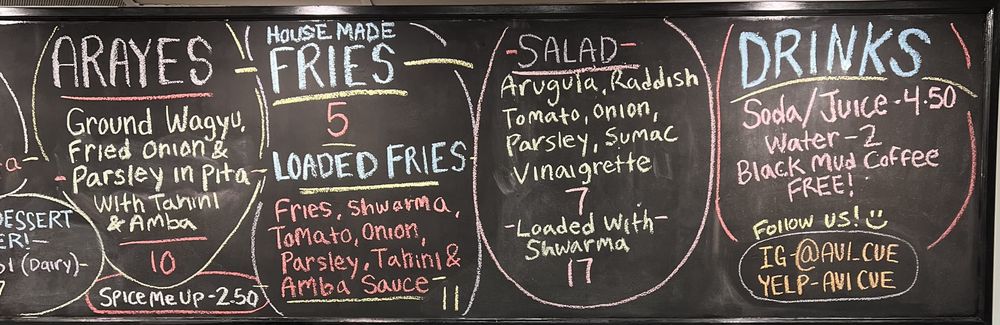 ARAYES
Ground Wagyu,
Fried Onion &
Parsley in Pita
With Tahini
& Amba
10
Spice Me Up - 2.50
DESSERT
(Dairy)-
HOUSE MADE
FRIES
5
LOADED FRIES
Fries, Shwarma,
Tomato, Onion,
Parsley, Tahini &
Amba Sauce
11
-SALAD-
Arugula, Raddish
Tomato, Onion,
Parsley, Sumac
Vinaigrette
7
-Loaded With-
Shwarma
17
DRINKS
Soda/Juice - 4.50
Water - 2
Black Mud Coffee
FREE!
Follow us!
IG-@AVI_CUE
YELP-AVI CUE